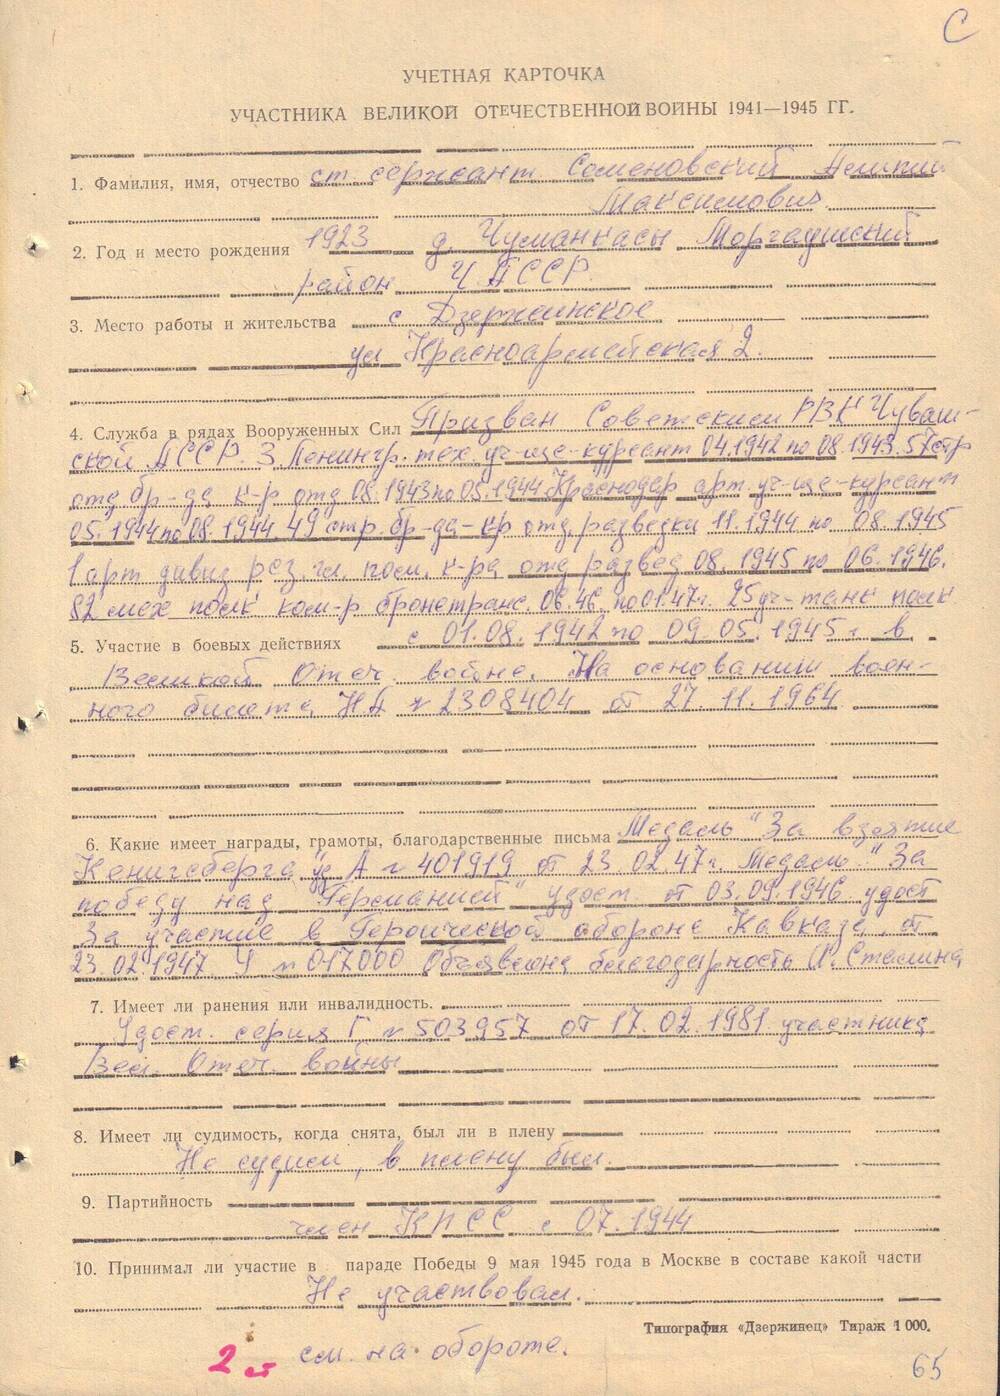 С
УЧЕТНАЯ КАРТОЧКА
УЧАСТНИКА ВЕЛИКОЙ ОТЕЧЕСТВЕННОЙ ВОЙНЫ 1941—1945 ГГ.
1. Фамилия, имя, отчество ст. сержант Семеновский
Максимович
2. Год и место рождения 1923 д. Чуманкасы Моргаушский
район Ч АССР.
3. Место работы и жительства с Дзержинское
ул Красноармейская 2.
4. Служба в рядах Вооруженных Сил Призван Советским РВК Чуваш-
ской АССР. 3 Ленингр. тех. уч-ще-курсант 04.1942 по 08.1943. 57 стр
отд бр-да к-р отд 08.1943 по 05.1944 Краснодар арт. уч-ще-курсант
05.1944 по 08.1944. 49 стр. бр-да-к-р отд. разведки 11.1944 по 08.1945
1 арт дивиз рез. гл. ком. к-ра отд развед 08.1945 по 06.1946.
82 мех полк ком-р бронетранс. 06.46. по 01.47г. 25 уч-танк полк
5. Участие в боевых действиях с 01.08.1942 по 09.05.1945 г. в
Великой Отеч. войне. На основании воен-
ного билета НА № 2308404 от 27.11.1964
6. Какие имеет награды, грамоты, благодарственные письма Медаль "За взятие
Кенигсберга" уд А № 401919 от 23.02.47г. Медаль "За
победу над Германией" удост. от 03.09.1946. удост
За участие в Героической обороне Кавказа от
23.02.1947 Ч № 017000 Объявлена благодарность И. Сталина
7. Имеет ли ранения или инвалидность.
Удост. серия Г № 503957 от 17.02.1981. участника
Вел. Отеч. войны
8. Имеет ли судимость, когда снята, был ли в плену
Не судим, в плену был.
9. Партийность
член КПСС с 07.1944
10. Принимал ли участие в параде Победы 9 мая 1945 года в Москве в составе какой части
Не участвовал.
Типография «Дзержинец» Тираж 1 000.
2 ст см. на обороте.
65